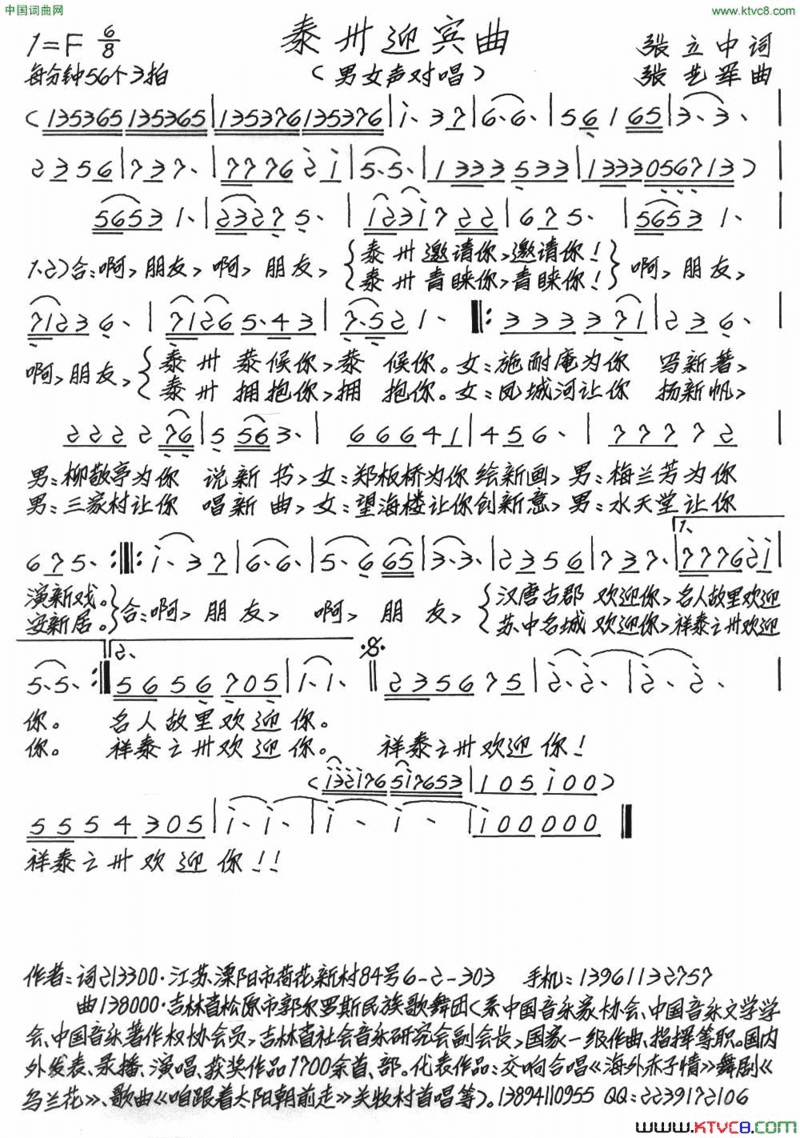 中国词曲网
www.ktvc8.com
1=F 6/8
泰州迎宾曲
张立中 词
每分钟56个3拍
(男女声对唱)
张艺军 曲
(135365135365|135376135376|i·37|6·6·|56165|3·3·|
2356|737·|777762i|5·5·|1333533|1333056713)
56531·|232 75·|i23i722|675·|56531·|
1.2)合:啊,朋友,啊,朋友,{泰州邀请你,邀请你!}啊,朋友,
{泰州青睐你,青睐你!}
71236·|71265·43|7·521·‖:333371|236·|
啊,朋友,{泰州恭候你,恭候你。女:施耐庵为你 写新著,
{泰州拥抱你,拥抱你。女:凤城河让你 扬新帆,
222276|5563·|66641|456·|777772
男:柳敬亭为你 说新书,女:郑板桥为你绘新画,男:梅兰芳为你
男:三家村让你 唱新曲,女:望海楼让你创新意,男:水天堂让你
675·:‖:i·37|6·6·|5·665|3·3·|2356|737·|1.777762i|
演新戏。}合:啊,朋友, 啊,朋友,{汉唐古郡 欢迎你,名人故里欢迎
安新居。} {苏中名城 欢迎你,祥泰之州欢迎
5·5·:‖2.5656705|i·i·‖𝄋235675|2·2·|2·2·|
你。 名人故里欢迎你。
你。 祥泰之州欢迎你。 祥泰之州欢迎你!
(i32i765i7653|105i00)
5554305|i·i·|i·i·|i00000‖
祥泰之州欢迎你!!
作者:词213300·江苏溧阳市荷花新村84号6-2-303 手机:13961132757
曲138000·吉林省松原市郭尔罗斯民族歌舞团(系中国音乐家协会、中国音乐文学学
会、中国音乐著作权协会员,吉林省社会音乐研究会副会长,国家一级作曲、指挥等职。国内
外发表、录播、演唱、获奖作品1700余首、部。代表作品:交响合唱《海外赤子情》舞剧《
乌兰花》、歌曲《咱跟着太阳朝前走》关牧村首唱等)。13894110955 QQ:2239172106
www.KTVC8.com